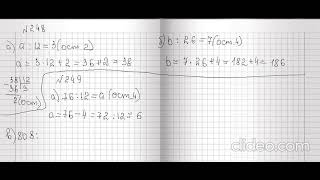 №248
а) a : 12 = 3(ост 2)
a = 3·12+2 = 36+2 = 38
38 12
36 3
2(ост)
№249
а) 76:12 = a(ост 4)
a = 76-4 = 72:12 = 6
в) 808:
б) b : 26 = 7(ост 4)
b = 7·26+4 = 182+4 = 186
clideo.com